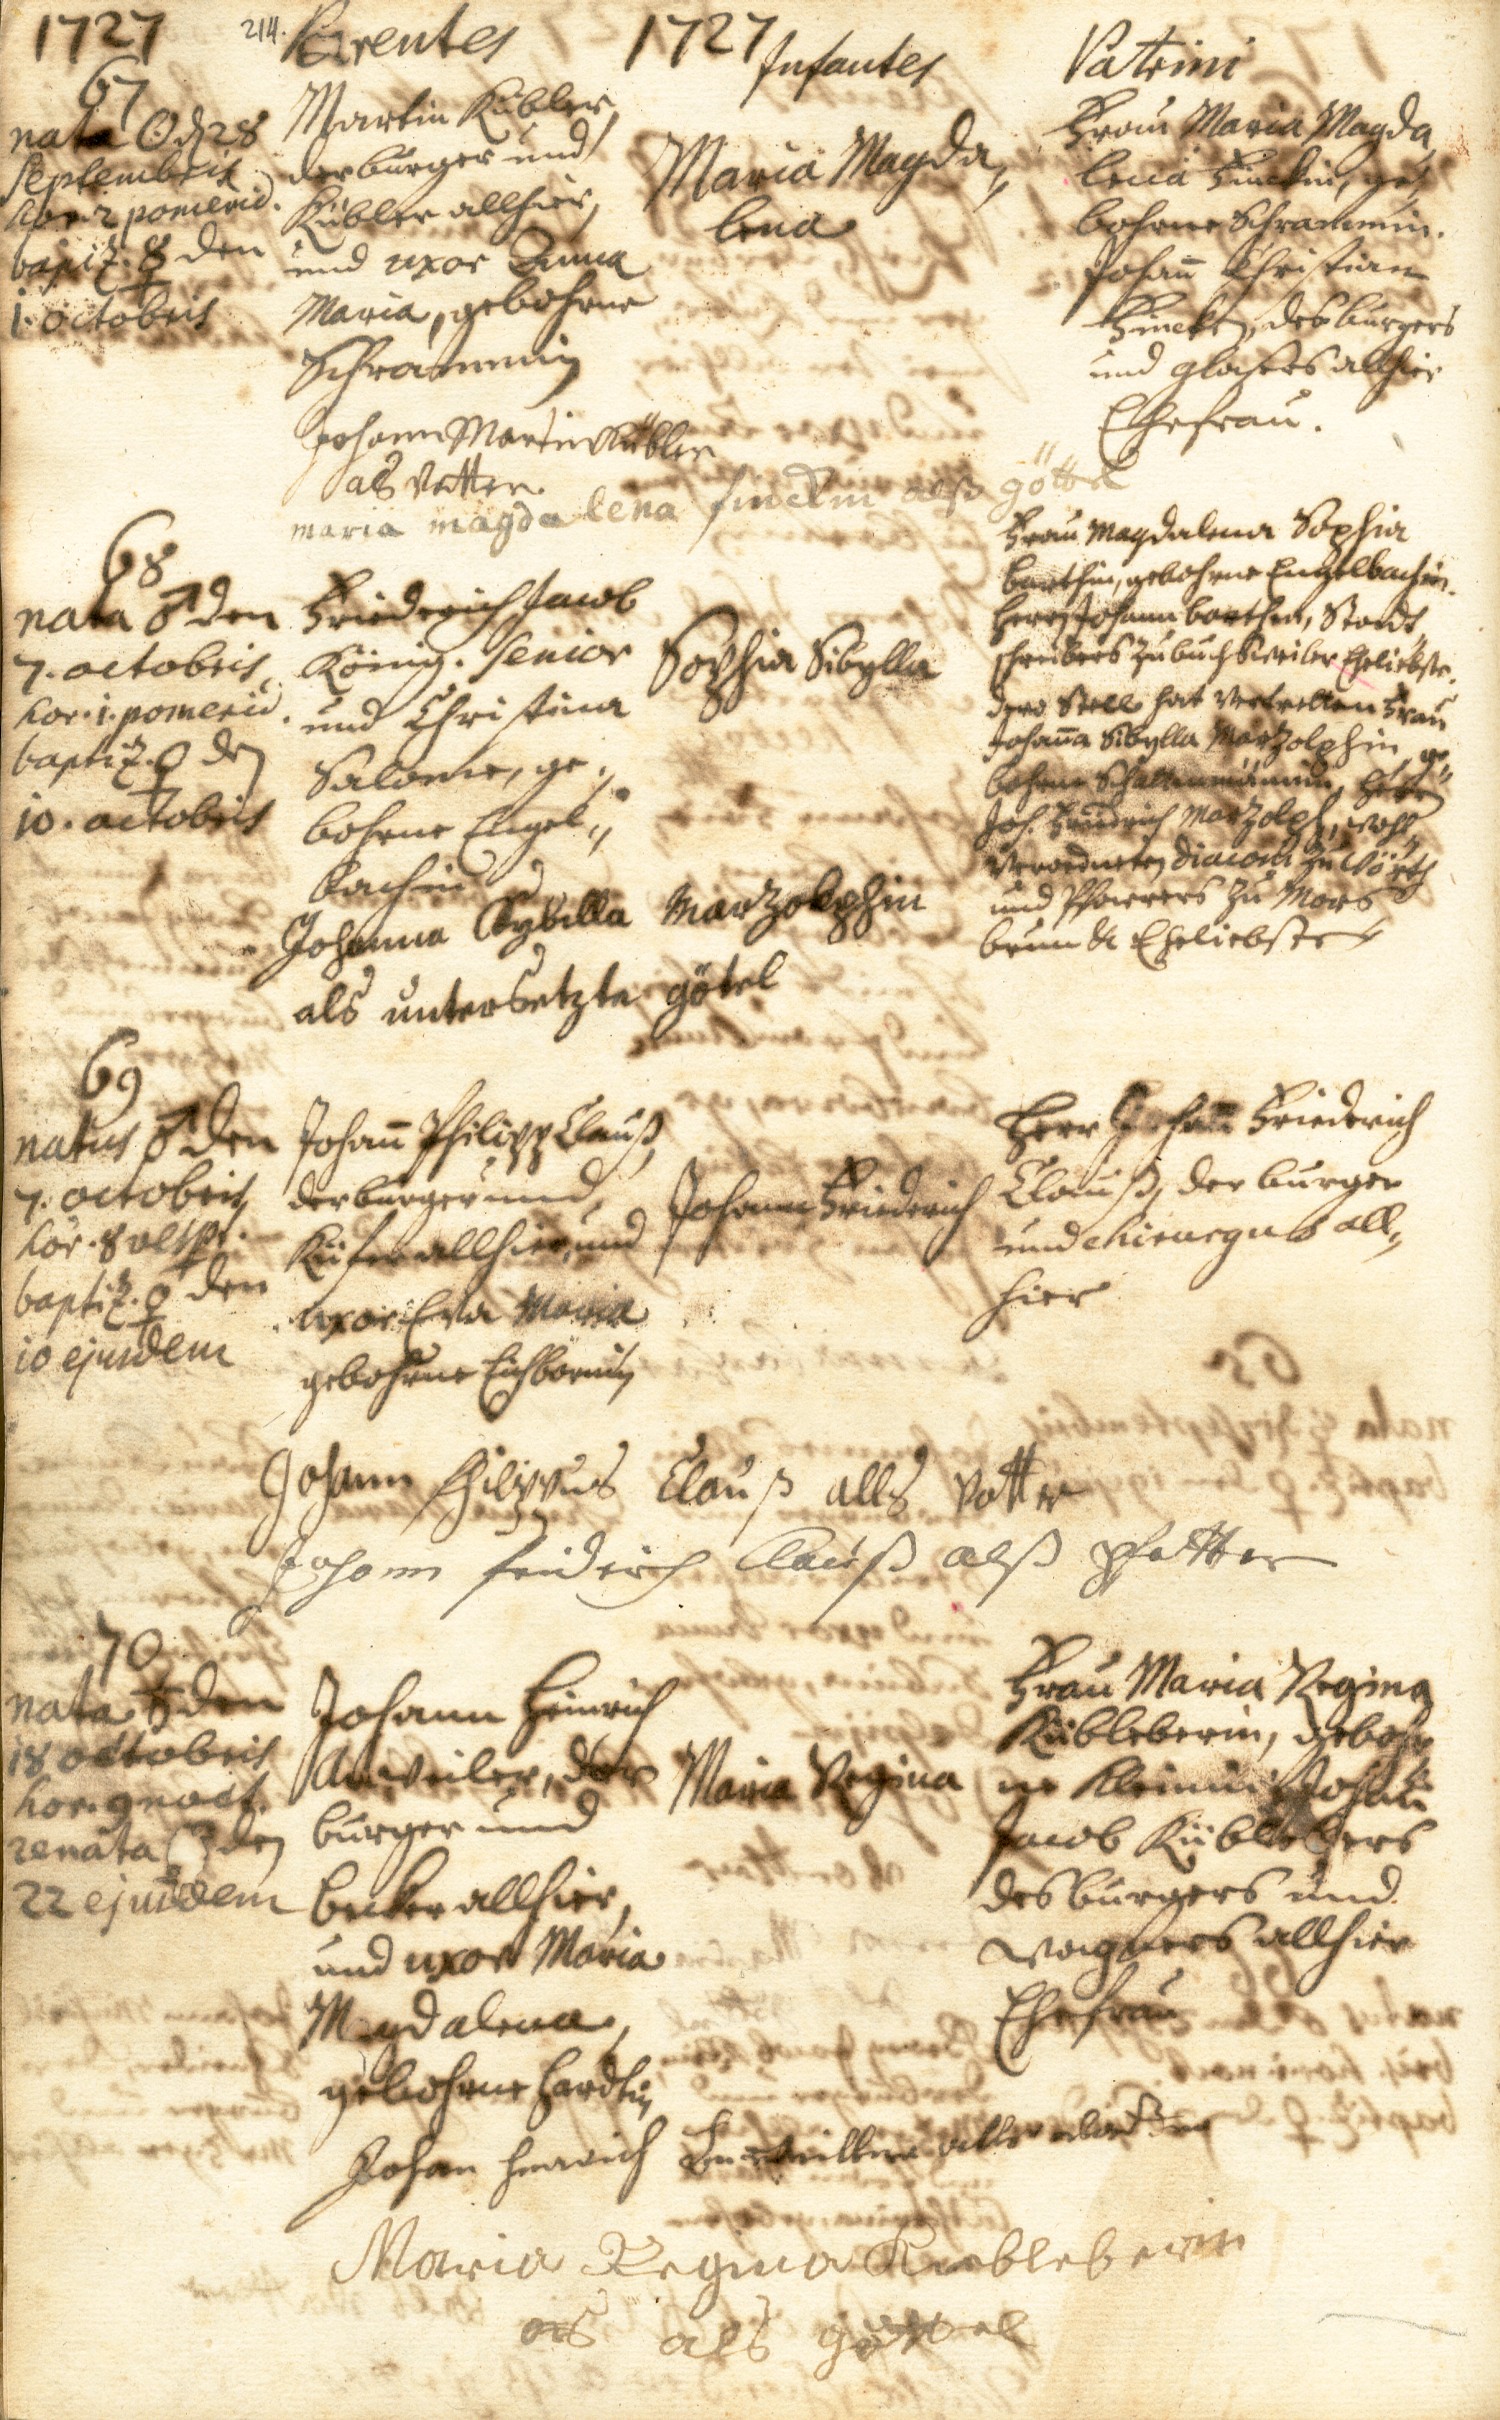 1727 214. Parentes 1727 Infantes Patrini
67
nata ☉ d 28
Septembris
hor. 2 pomerid.
baptiz. ☿ den
1. octobris
Martin Kübler,
der burger und
Kübler allhier,
und uxor Anna
Maria, gebohrne
Schrammin
Maria Magda„
lena
Frau Maria Magda„
lena Finckin, ge„
bohrne Schrammin.
Johañ Christian
Fincken, des burgers
und glasers allhier
Ehefrau.
Johann Martin Kübler
als Vatter.
maria magdalena finckin alß göttel
68
nata ♂ den
7. octobris,
hor. 1. pomerid.
baptiz. ♀ den
10. octobris
Friederich Jacob
König. Senior
und Christina
Salome, ge„
bohrne Engel„
bachin
Sophia Sibylla
Frau Magdalena Sophia
barthin, gebohrne Engelbachin.
Herrn Johann barthen, Stadt„
schreibers zu buchsweiler Eheliebste.
dero Stell hat vertretten Frau
Johaña Sibylla Martzolphin, ge„
bohrne, Herrn
Joh. Friedrich Martzolph, wohl„
verordneten Diaconi zu Wörth
und Pfarrers zu Mors„
brunn &c Eheliebste
Johanna Sybilla Martzolphin
als untersetzte götel
69
natus ♂ den
7. octobris,
hor. 8 vesp.
baptiz. ♀ den
10 ejusdem
Johañ Philipp Clauß,
der burger und
Küfer allhier, und
uxor Eva Maria
gebohrne Eichbornin
Johann Friederich
Herr Johañ Friederich
Clauß, der burger
und chirurgus all„
hier
Johann Philippus Clauß alls Vatter
Johann fridirich Clauß alß pfetter
70
nata ♄ den
18 octobris
hor. 9 noct.
renata ☿ den
22 ejusdem
Johann Heinrich
Anweiler, der
burger und
becker allhier,
und uxor Maria
Magdalena,
gebohrne Hardtin
Maria Regina
Frau Maria Regina
Kübleberin, gebohr„
ne Kleinin, Johañ
Jacob Küblebers
des burgers und
wagners allhier
Ehefrau
Johan Henrich alls Vatter
Maria Regina Kiebleberin
als göttel